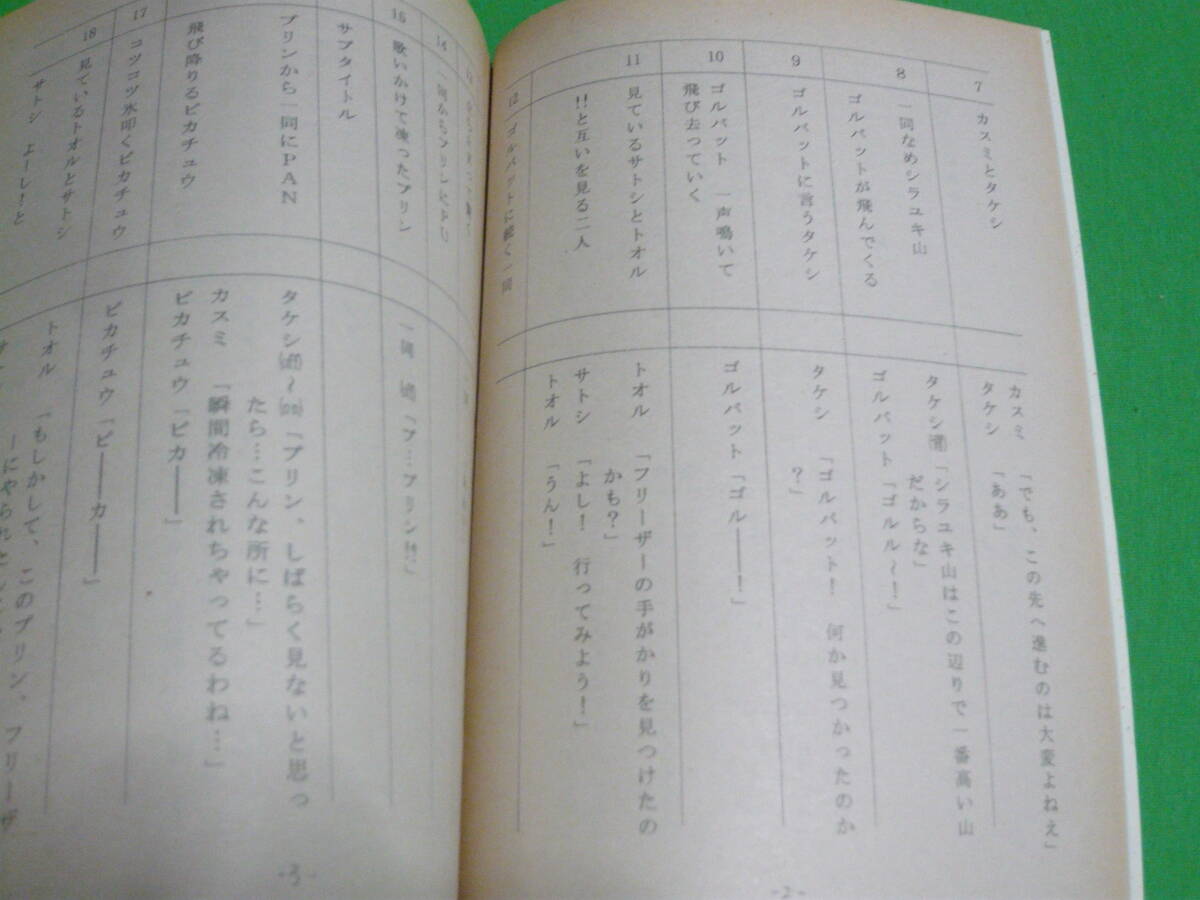 7
カスミとタケシ
カスミ 「でも、この先へ進むのは大変よねえ」
タケシ 「ああ」
8
一同なめシラユキ山
タケシ 「シラユキ山はこの辺りで一番高い山
だからな」
ゴルバットが飛んでくる
ゴルバット「ゴルル〜！」
9
ゴルバットに言うタケシ
タケシ 「ゴルバット！ 何か見つかったのか
？」
10
ゴルバット 一声鳴いて
飛び去っていく
ゴルバット「ゴル――！」
11
見ているサトシとトオル
!!と互いを見る二人
トオル 「フリーザーの手がかりを見つけたの
かも？」
サトシ 「よし！ 行ってみよう！」
トオル 「うん！」
12
ゴルバットに続く一同
-2-
14
一同からプリンにPU
15
歌いかけて凍ったプリン
一同 「プ…プリン!?」
サブタイトル
プリンから一同にPAN
タケシ 〜 「プリン、しばらく見ないと思っ
たら…こんな所に…」
カスミ 「瞬間冷凍されちゃってるわね…」
飛び降りるピカチュウ
ピカチュウ「ピカ――」
17
コツコツ氷叩くピカチュウ
ピカチュウ「ピ――カ――」
18
見ているトオルとサトシ
トオル 「もしかして、このプリン、フリーザ
ーにやられと
サトシ よーし！と
-3-